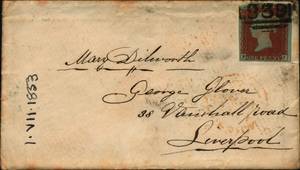 Mary Dilworth
George Glover
38 Vauxhall road
Liverpool
1·VII·1853